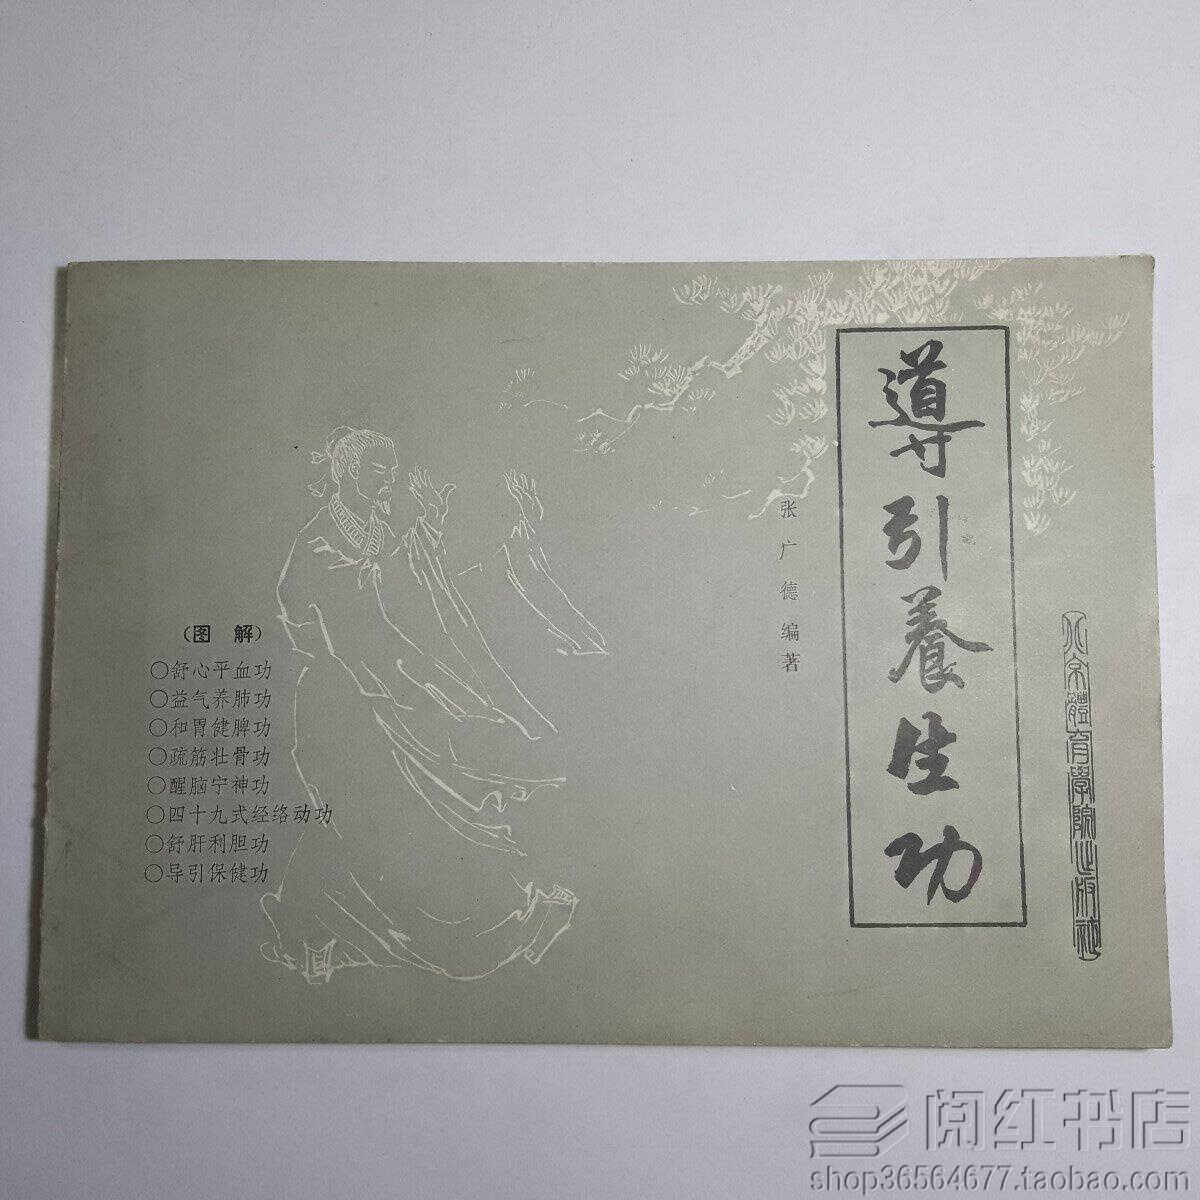 導引養生功
张广德编著
北京體育學院出版社
(图 解)
○舒心平血功
○益气养肺功
○和胃健脾功
○疏筋壮骨功
○醒脑宁神功
○四十九式经络动功
○舒肝利胆功
○导引保健功
阅红书店
shop36564677.taobao.com